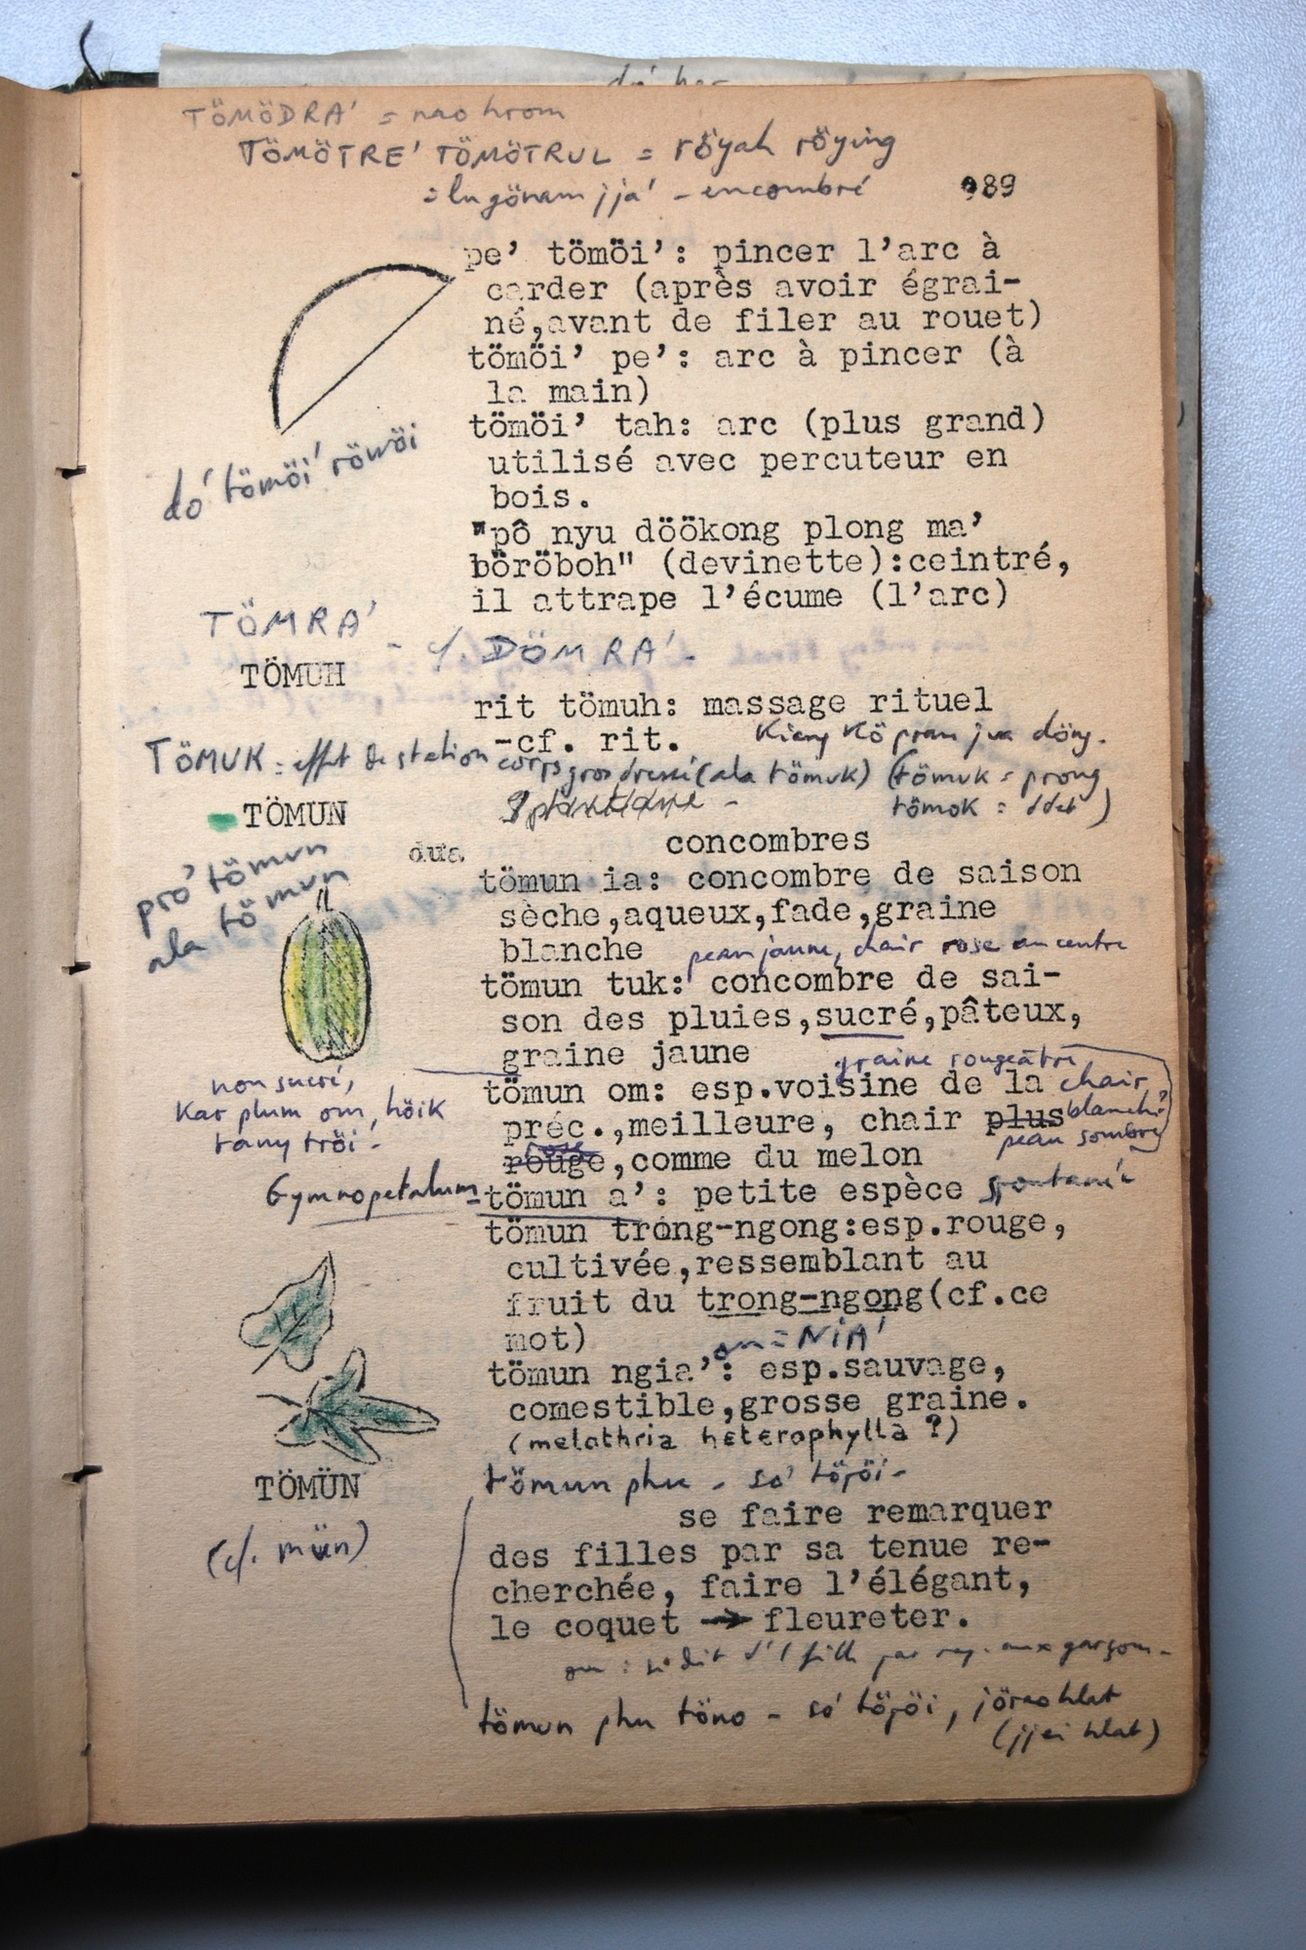 TÖMÖDRA' = nao hrom
TÖMÖTRE' TÖMÖTRUL = röyah röying
= lu gönam jja' - encombré
989
pe’ tömöi’: pincer l’arc à
carder (après avoir égrai-
né,avant de filer au rouet)
tömöi’ pe’: arc à pincer (à
la main)
tömöi’ tah: arc (plus grand)
utilisé avec percuteur en
bois.
dó' tömöi' römöi
"pô nyu döökong plong ma’
böröboh" (devinette):ceintré,
il attrape l’écume (l’arc)
TÖMRA' - cf. DÖMRA'.
TÖMUH
rit tömuh: massage rituel
-cf. rit.
Kieng Kö pran jua döng.
TÖMUK = effet de station corps gros dressé (ala tömuk) (tömuk = prong
tömok = ddet)
TÖMUN
dưa
concombres
pro' tömun
ala tömun
tömun ia: concombre de saison
sèche,aqueux,fade,graine
blanche peau jaune, chair rose au centre
tömun tuk: concombre de sai-
son des pluies,sucré,pâteux,
graine jaune graine rougeâtre
non sucré,
Kar plum om, höik
tany tröi -
tömun om: esp.voisine de la chair
préc.,meilleure, chair plus blanche
peau sombre
rouge,comme du melon
Gymnopetalum = tömun a’: petite espèce spontanée
tömun trong-ngong:esp.rouge,
cultivée,ressemblant au
fruit du trong-ngong(cf.ce
mot)
ou = NIA'
tömun ngia’: esp.sauvage,
comestible,grosse graine.
(melothria heterophylla ?)
tömun phu - so' töjöi -
TÖMÜN
(cf. mün)
se faire remarquer
des filles par sa tenue re-
cherchée, faire l’élégant,
le coquet → fleureter.
ou : se dit d'1 fille par rap. aux garçons -
tömun phu töno - so' töjöi, jörao hlat
(jjei hlat)